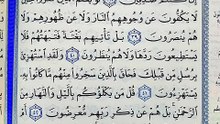 لَا يَكُفُّونَ عَن وُجُوهِهِمُ النَّارَ وَلَا عَن ظُهُورِهِمْ وَلَا
هُمْ يُنصَرُونَ ٣٩ بَلْ تَأْتِيهِم بَغْتَةً فَتَبْهَتُهُمْ فَلَا
يَسْتَطِيعُونَ رَدَّهَا وَلَا هُمْ يُنظَرُونَ ٤٠ وَلَقَدِ اسْتُهْزِئَ
بِرُسُلٍ مِّن قَبْلِكَ فَحَاقَ بِالَّذِينَ سَخِرُوا مِنْهُم مَّا كَانُوا بِهِ
يَسْتَهْزِئُونَ ٤١ قُلْ مَن يَكْلَؤُكُم بِاللَّيْلِ وَالنَّهَارِ مِنَ
الرَّحْمَٰنِ بَلْ هُمْ عَن ذِكْرِ رَبِّهِم مُّعْرِضُونَ ٤٢